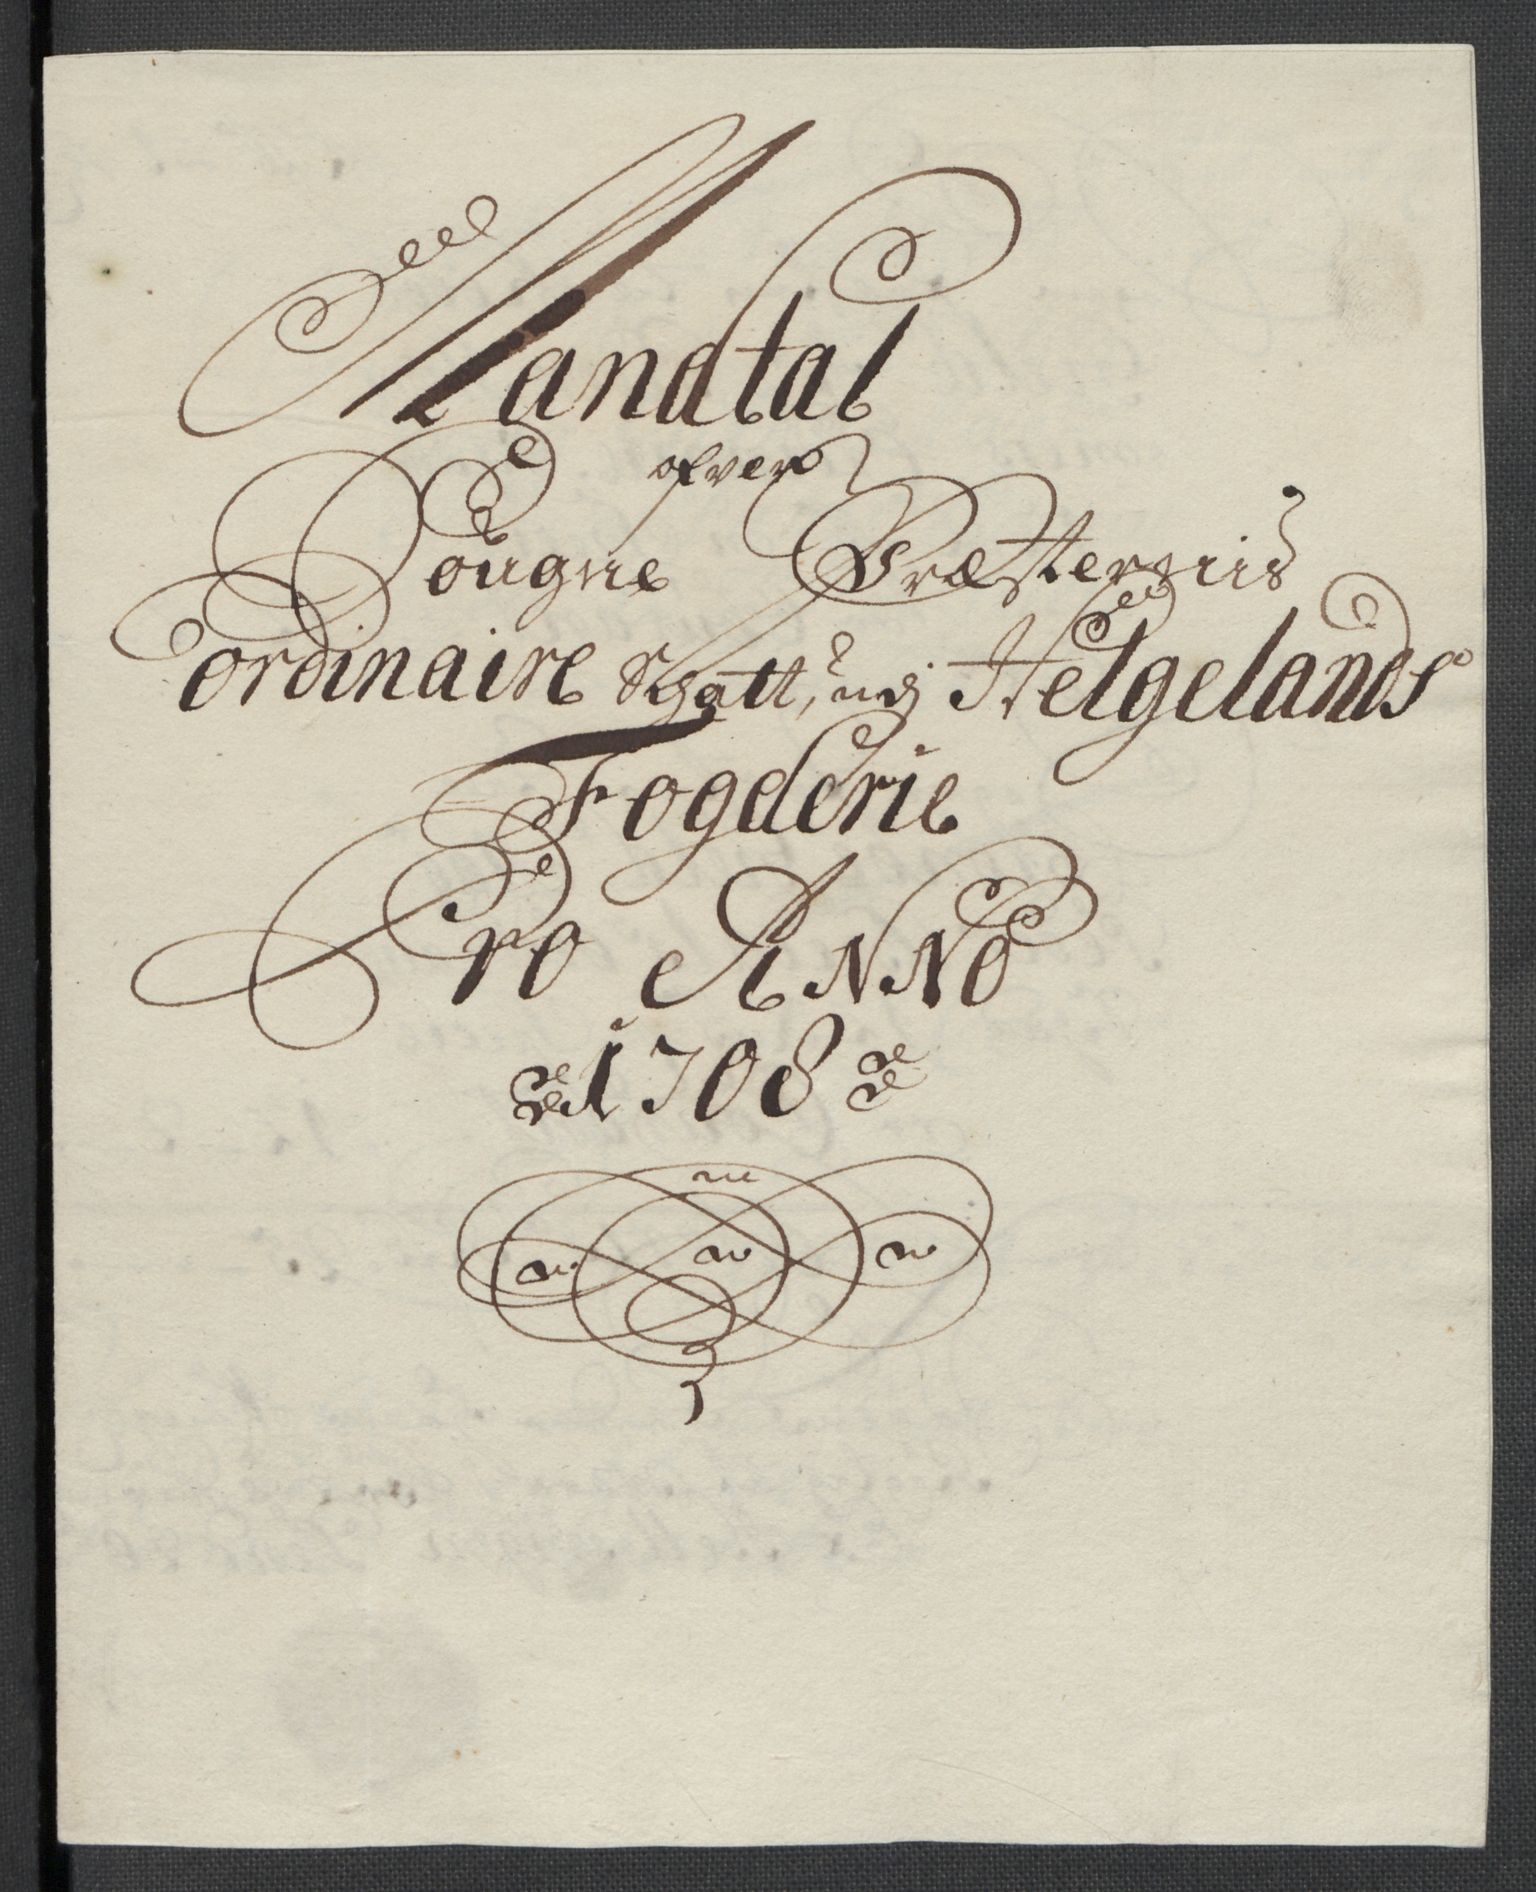 Mandtal
ofver
Dougne Præstergiis
ordinaire Schatt, udj Helgelands
Fogderie
Pro ANNO
1708